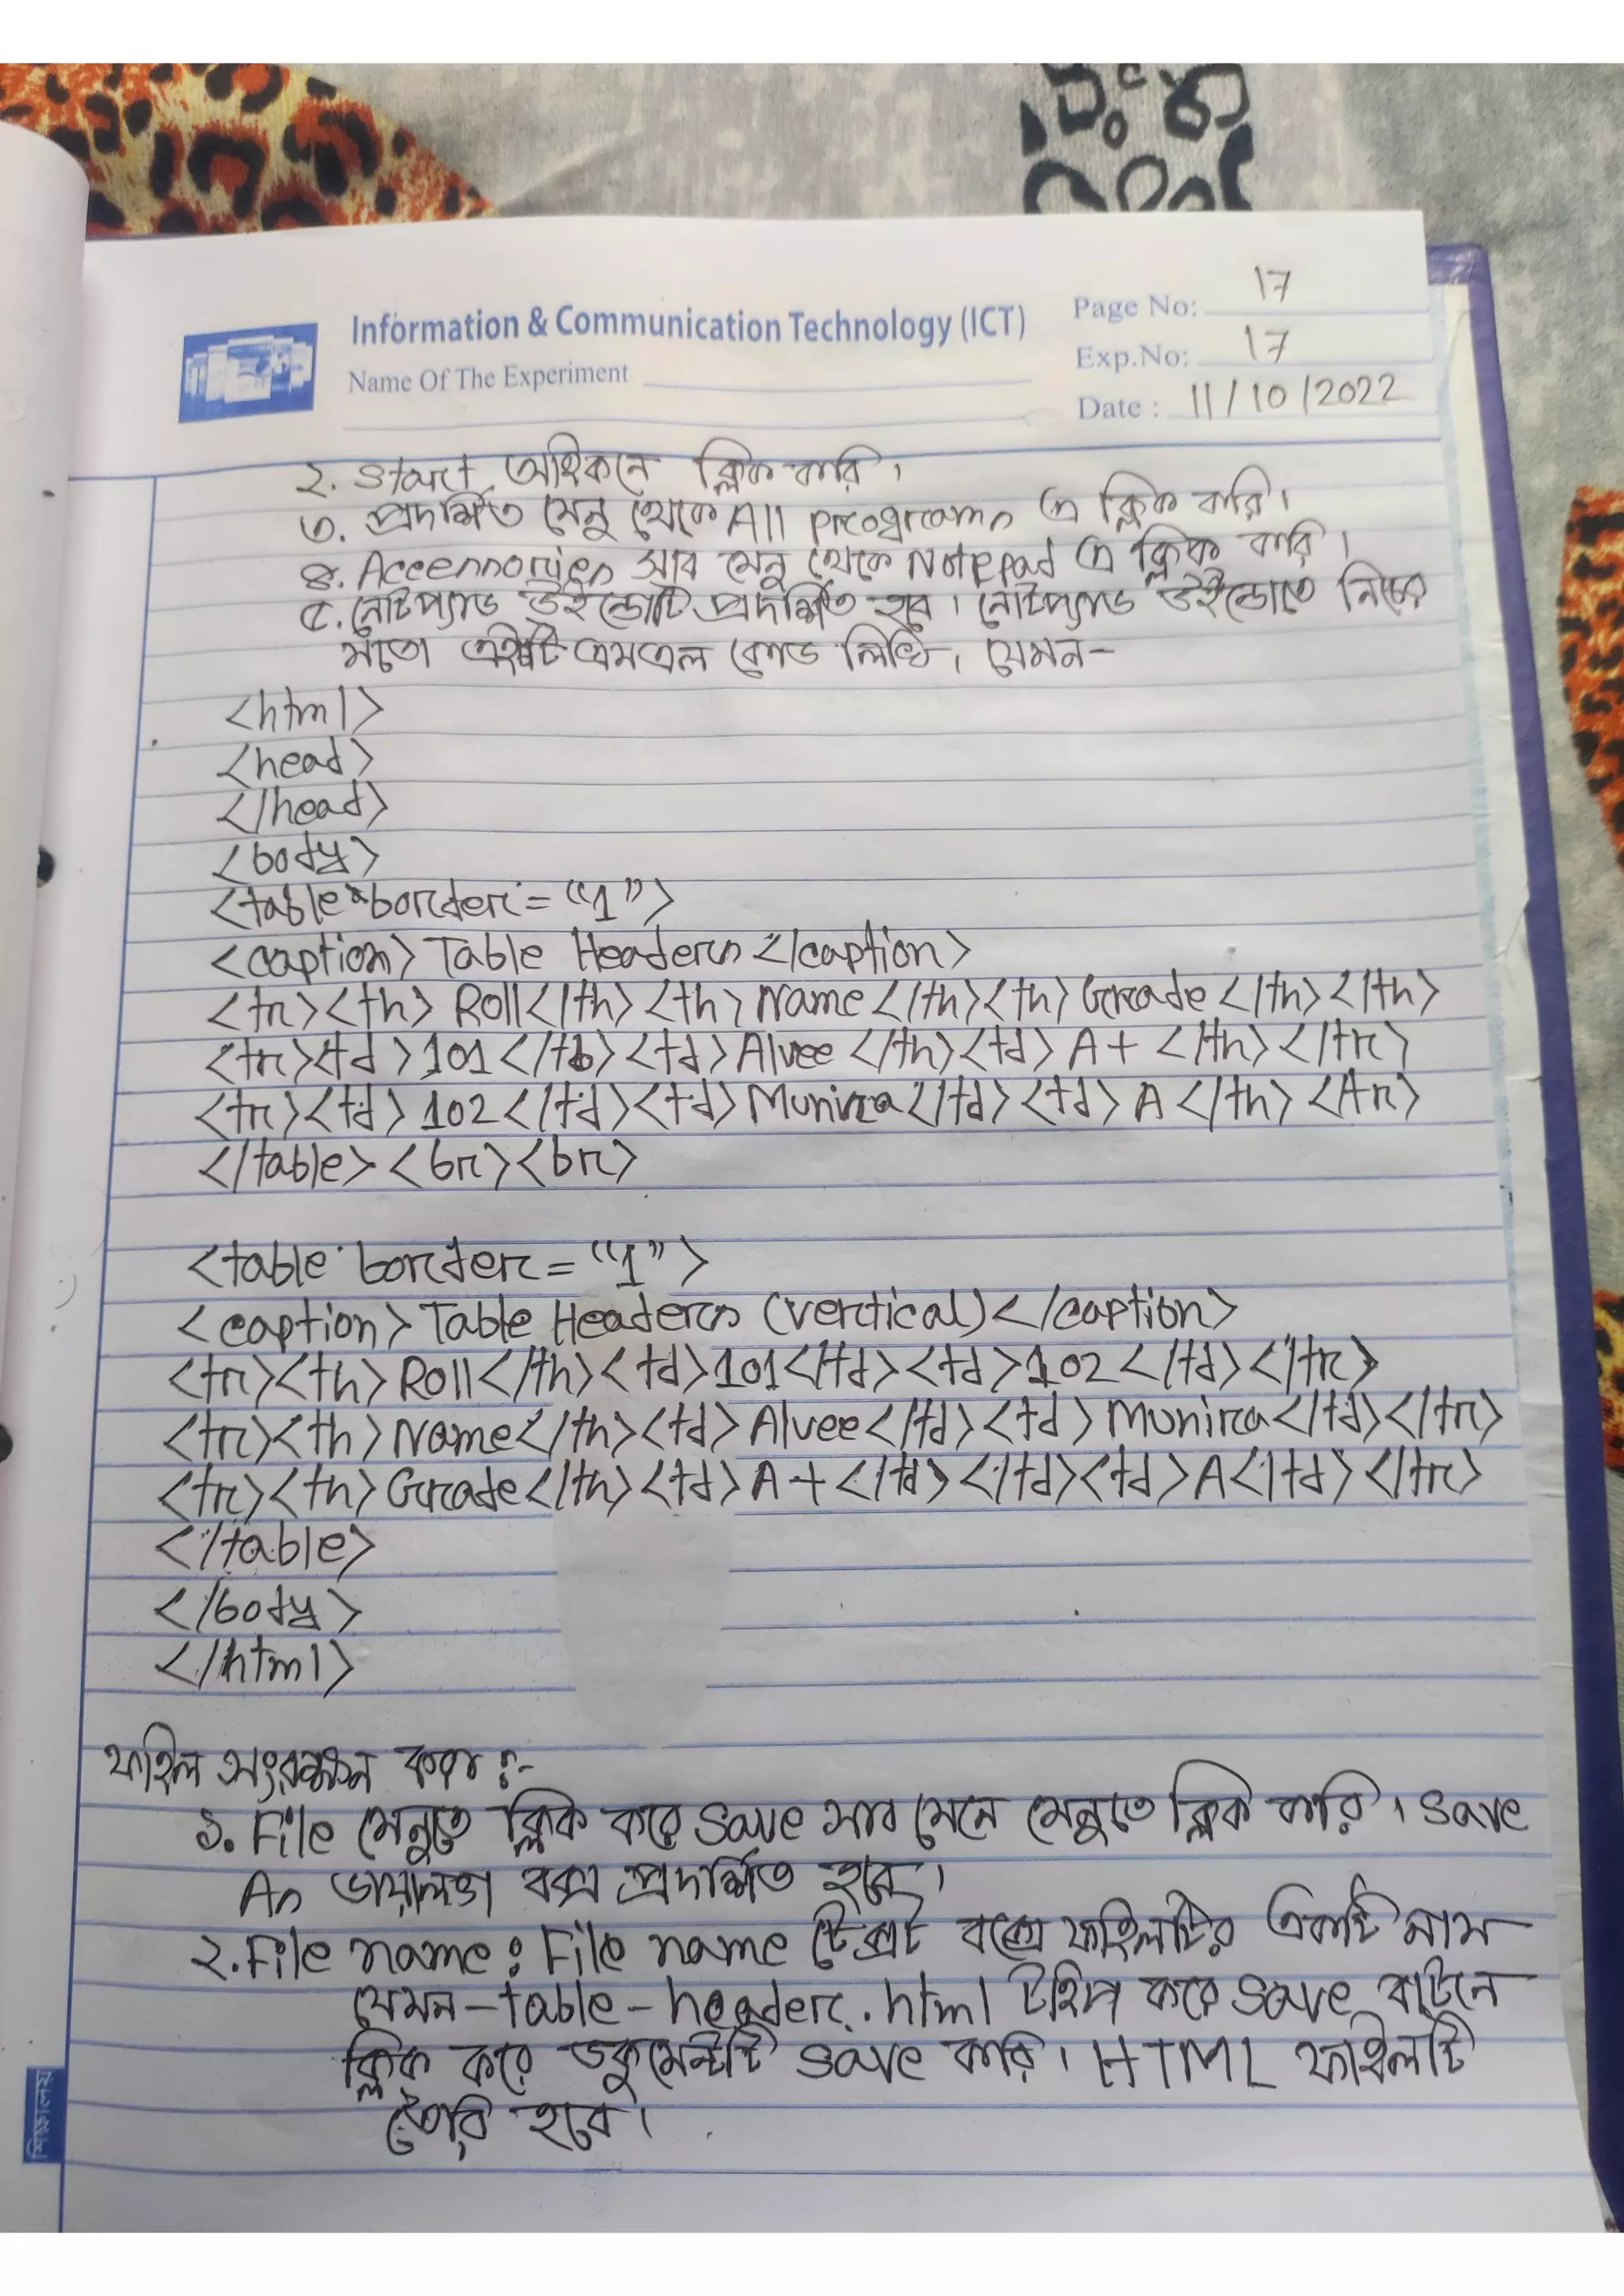 Information & Communication Technology (ICT)
Name Of The Experiment
Page No: 17
Exp.No: 17
Date : 11/10/2022
২. Start আইকনে ক্লিক করি।
৩. প্রদর্শিত মেনু থেকে All programs এ ক্লিক করি।
৪. Accessories সাব মেনু থেকে Notepad এ ক্লিক করি।
৫. নোটপ্যাড উইন্ডোটি প্রদর্শিত হবে। নোটপ্যাড উইন্ডোতে নিচের
মতো এইচটিএমএল কোড লিখি, যেমন-
<html>
<head>
</head>
<body>
<table border = "1">
<caption> Table Headers </caption>
<tr><th> Roll </th><th> Name </th><th> Grade </th></th>
<tr><td>101</td><td>Alvee </th><td> A+ </th></tr>
<tr><td>102</td><td>Munira</td><td> A </th></tr>
</table> <br><br>
<table border = "1">
<caption> Table Headers (vertical) </caption>
<tr><th> Roll </th><td>101</td><td>102</td></tr>
<tr><th> Name </th><td> Alvee </td><td> Munira </td></tr>
<tr><th> Grade </th><td> A+ </td></td><td> A </td></tr>
</table>
</body>
</html>
ফাইল সংরক্ষন করা :-
১. File মেনুতে ক্লিক করে save সাব মেনে মেনুতে ক্লিক করি। save
As ডায়ালগ বক্স প্রদর্শিত হবে।
২. File name : File name টেক্সট বক্সে ফাইলটির একটি নাম
যেমন - table - header.html টাইপ করে save বাটনে
ক্লিক করে ডকুমেন্টটি save করি। HTML ফাইলটি
তৈরি হবে।
শিক্ষালয়